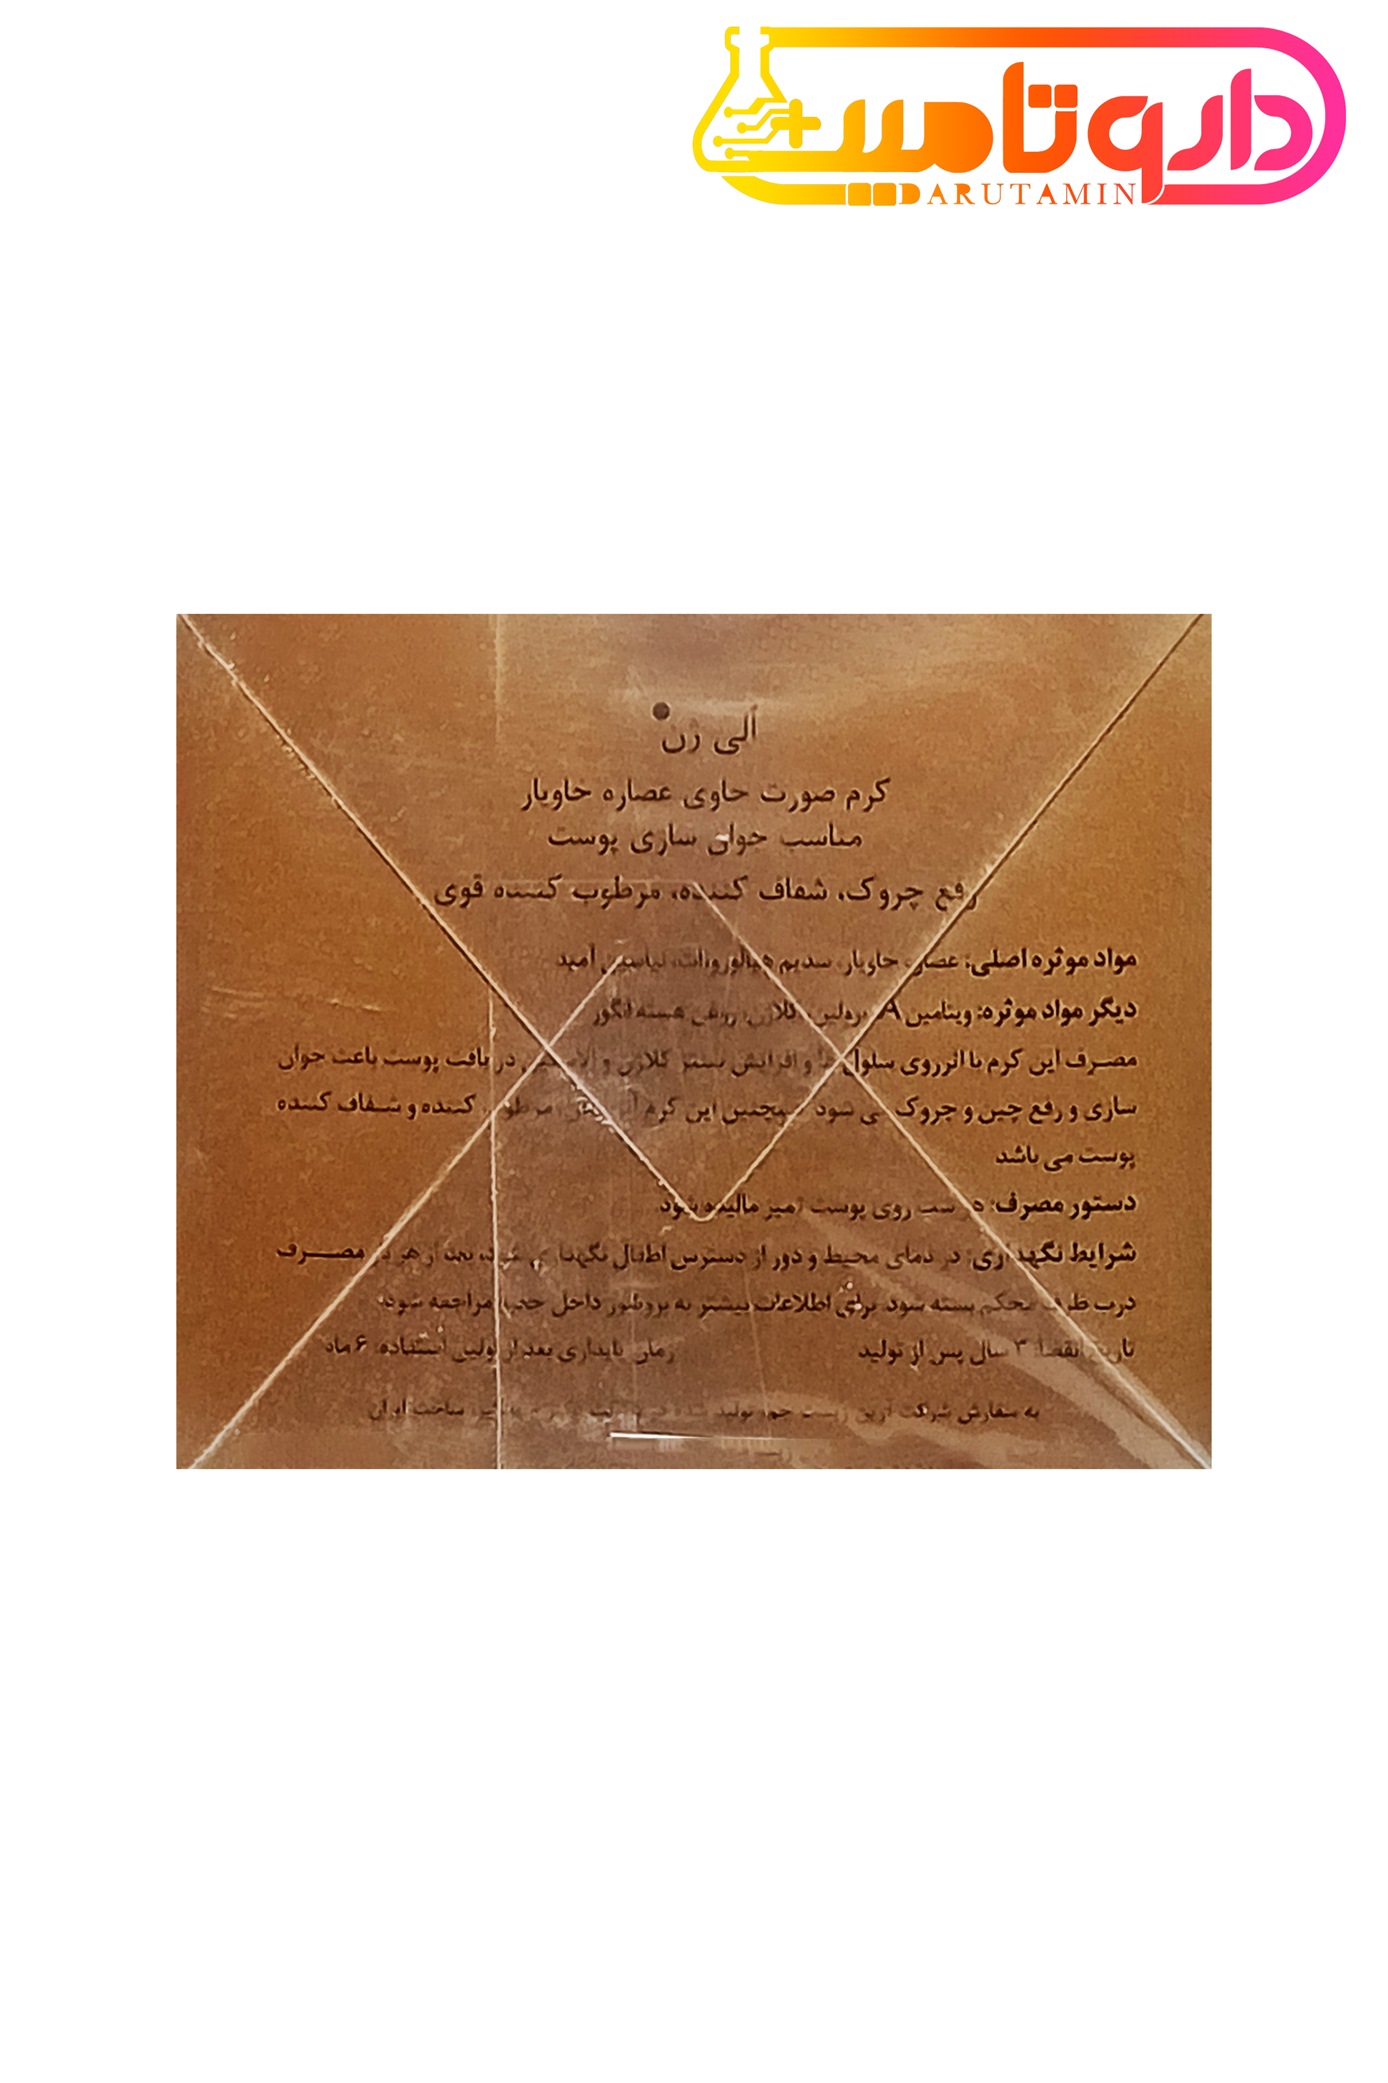 داروتامین
DARUTAMIN
اَلی ژن
کرم صورت حاوی عصاره خاویار
مناسب جوان سازی پوست
رفع چروک، شفاف کننده، مرطوب کننده قوی
مواد موثره اصلی: عصاره خاویار، سدیم هیالورونات، نیاسین آمید
دیگر مواد موثره: ویتامین A، پرولین، کلاژن، روغن هسته انگور
مصرف این کرم با اثر روی سلول ها و افزایش سنتز کلاژن و الاستین در بافت پوست باعث جوان
سازی و رفع چین و چروک می شود همچنین این کرم مرطوب کننده و شفاف کننده
پوست می باشد
دستور مصرف: در شب روی پوست تمیز مالیده شود.
شرایط نگهداری: در دمای محیط و دور از دسترس اطفال نگهداری شود، بعد از هر بار مصرف
درب ظرف محکم بسته شود. برای اطلاعات بیشتر به بروشور داخل جعبه مراجعه شود.
تاریخ انقضا: ۳ سال پس از تولید
زمان پایداری بعد از اولین استفاده: ۶ ماه
به سفارش شرکت آرین زیست جم، تولید شده در ساخت ایران